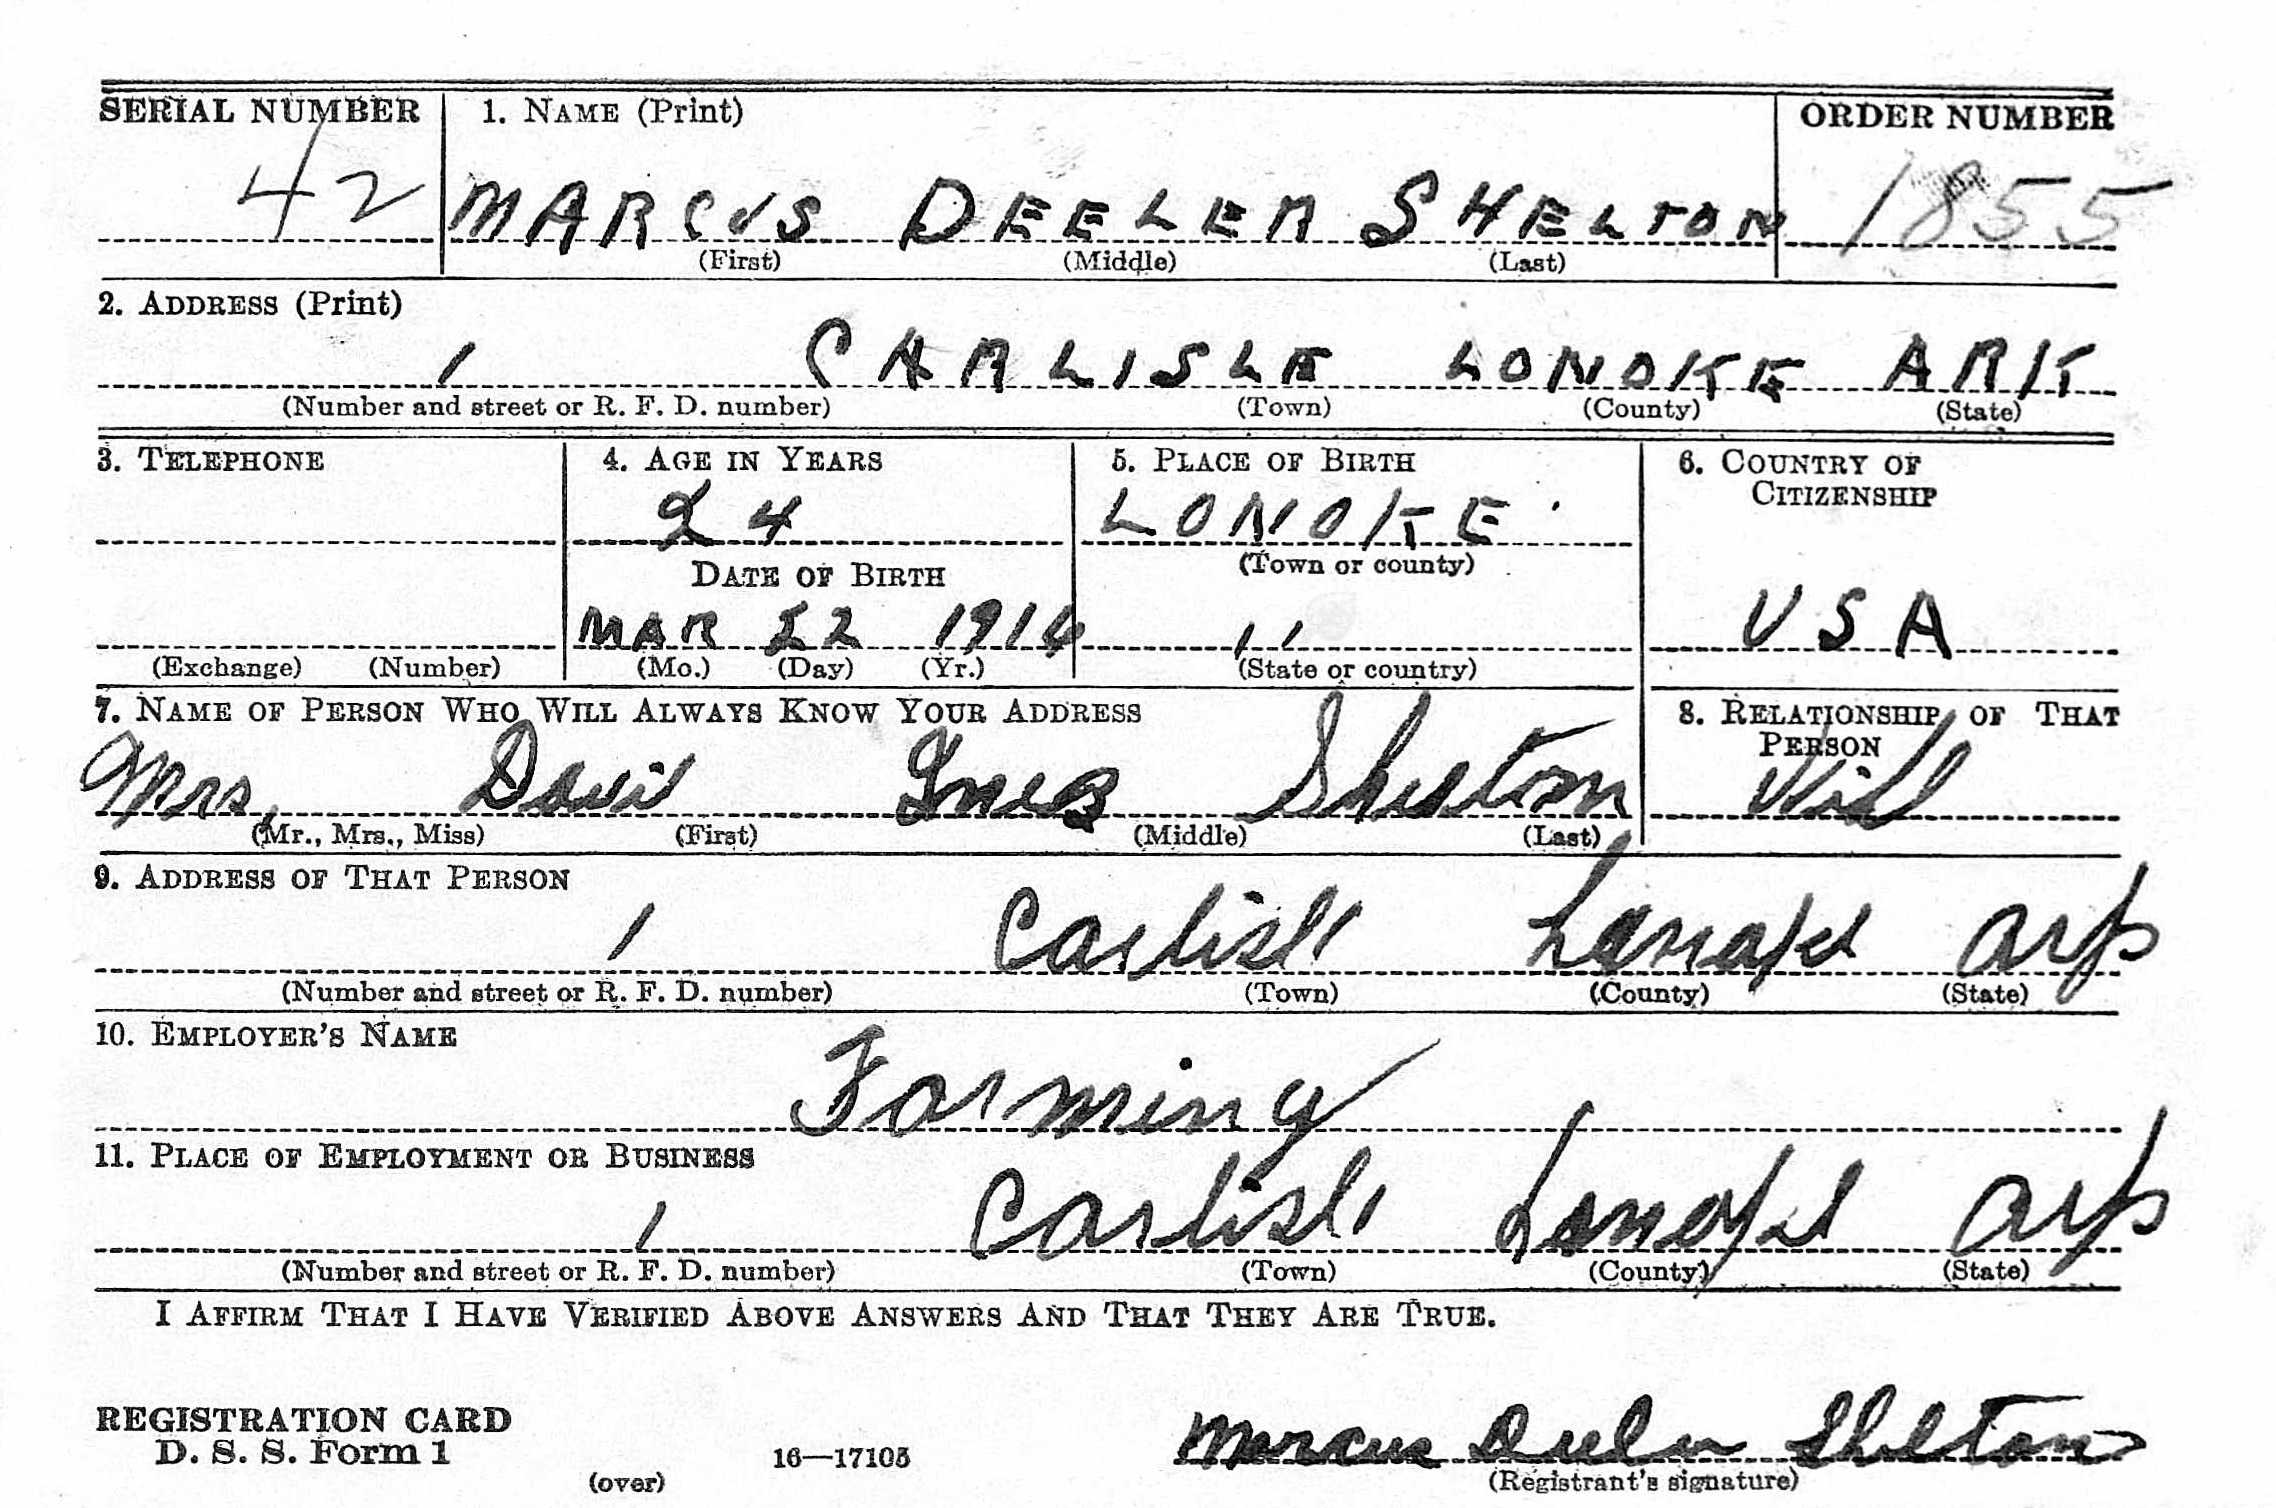 SERIAL NUMBER 1. NAME (Print) ORDER NUMBER
42 MARCUS DEELER SHELTON 1855
(First) (Middle) (Last)
2. ADDRESS (Print)
1 CARLISLE LONOKE ARK
(Number and street or R. F. D. number) (Town) (County) (State)
3. TELEPHONE 4. AGE IN YEARS 5. PLACE OF BIRTH 6. COUNTRY OF
CITIZENSHIP
24 LONOKE
DATE OF BIRTH (Town or county)
MAR 22 1916 11 USA
(Exchange) (Number) (Mo.) (Day) (Yr.) (State or country)
7. NAME OF PERSON WHO WILL ALWAYS KNOW YOUR ADDRESS 8. RELATIONSHIP OF THAT
PERSON
Mrs. Inez Shelton
(Mr., Mrs., Miss) (First) (Middle) (Last)
9. ADDRESS OF THAT PERSON
1 Carlisle Lonoke Ark
(Number and street or R. F. D. number) (Town) (County) (State)
10. EMPLOYER'S NAME
Farming
11. PLACE OF EMPLOYMENT OR BUSINESS
1 Carlisle Lonoke Ark
(Number and street or R. F. D. number) (Town) (County) (State)
I AFFIRM THAT I HAVE VERIFIED ABOVE ANSWERS AND THAT THEY ARE TRUE.
REGISTRATION CARD
D. S. S. Form 1 16—17105 Marcus Deeler Shelton
(over) (Registrant's signature)